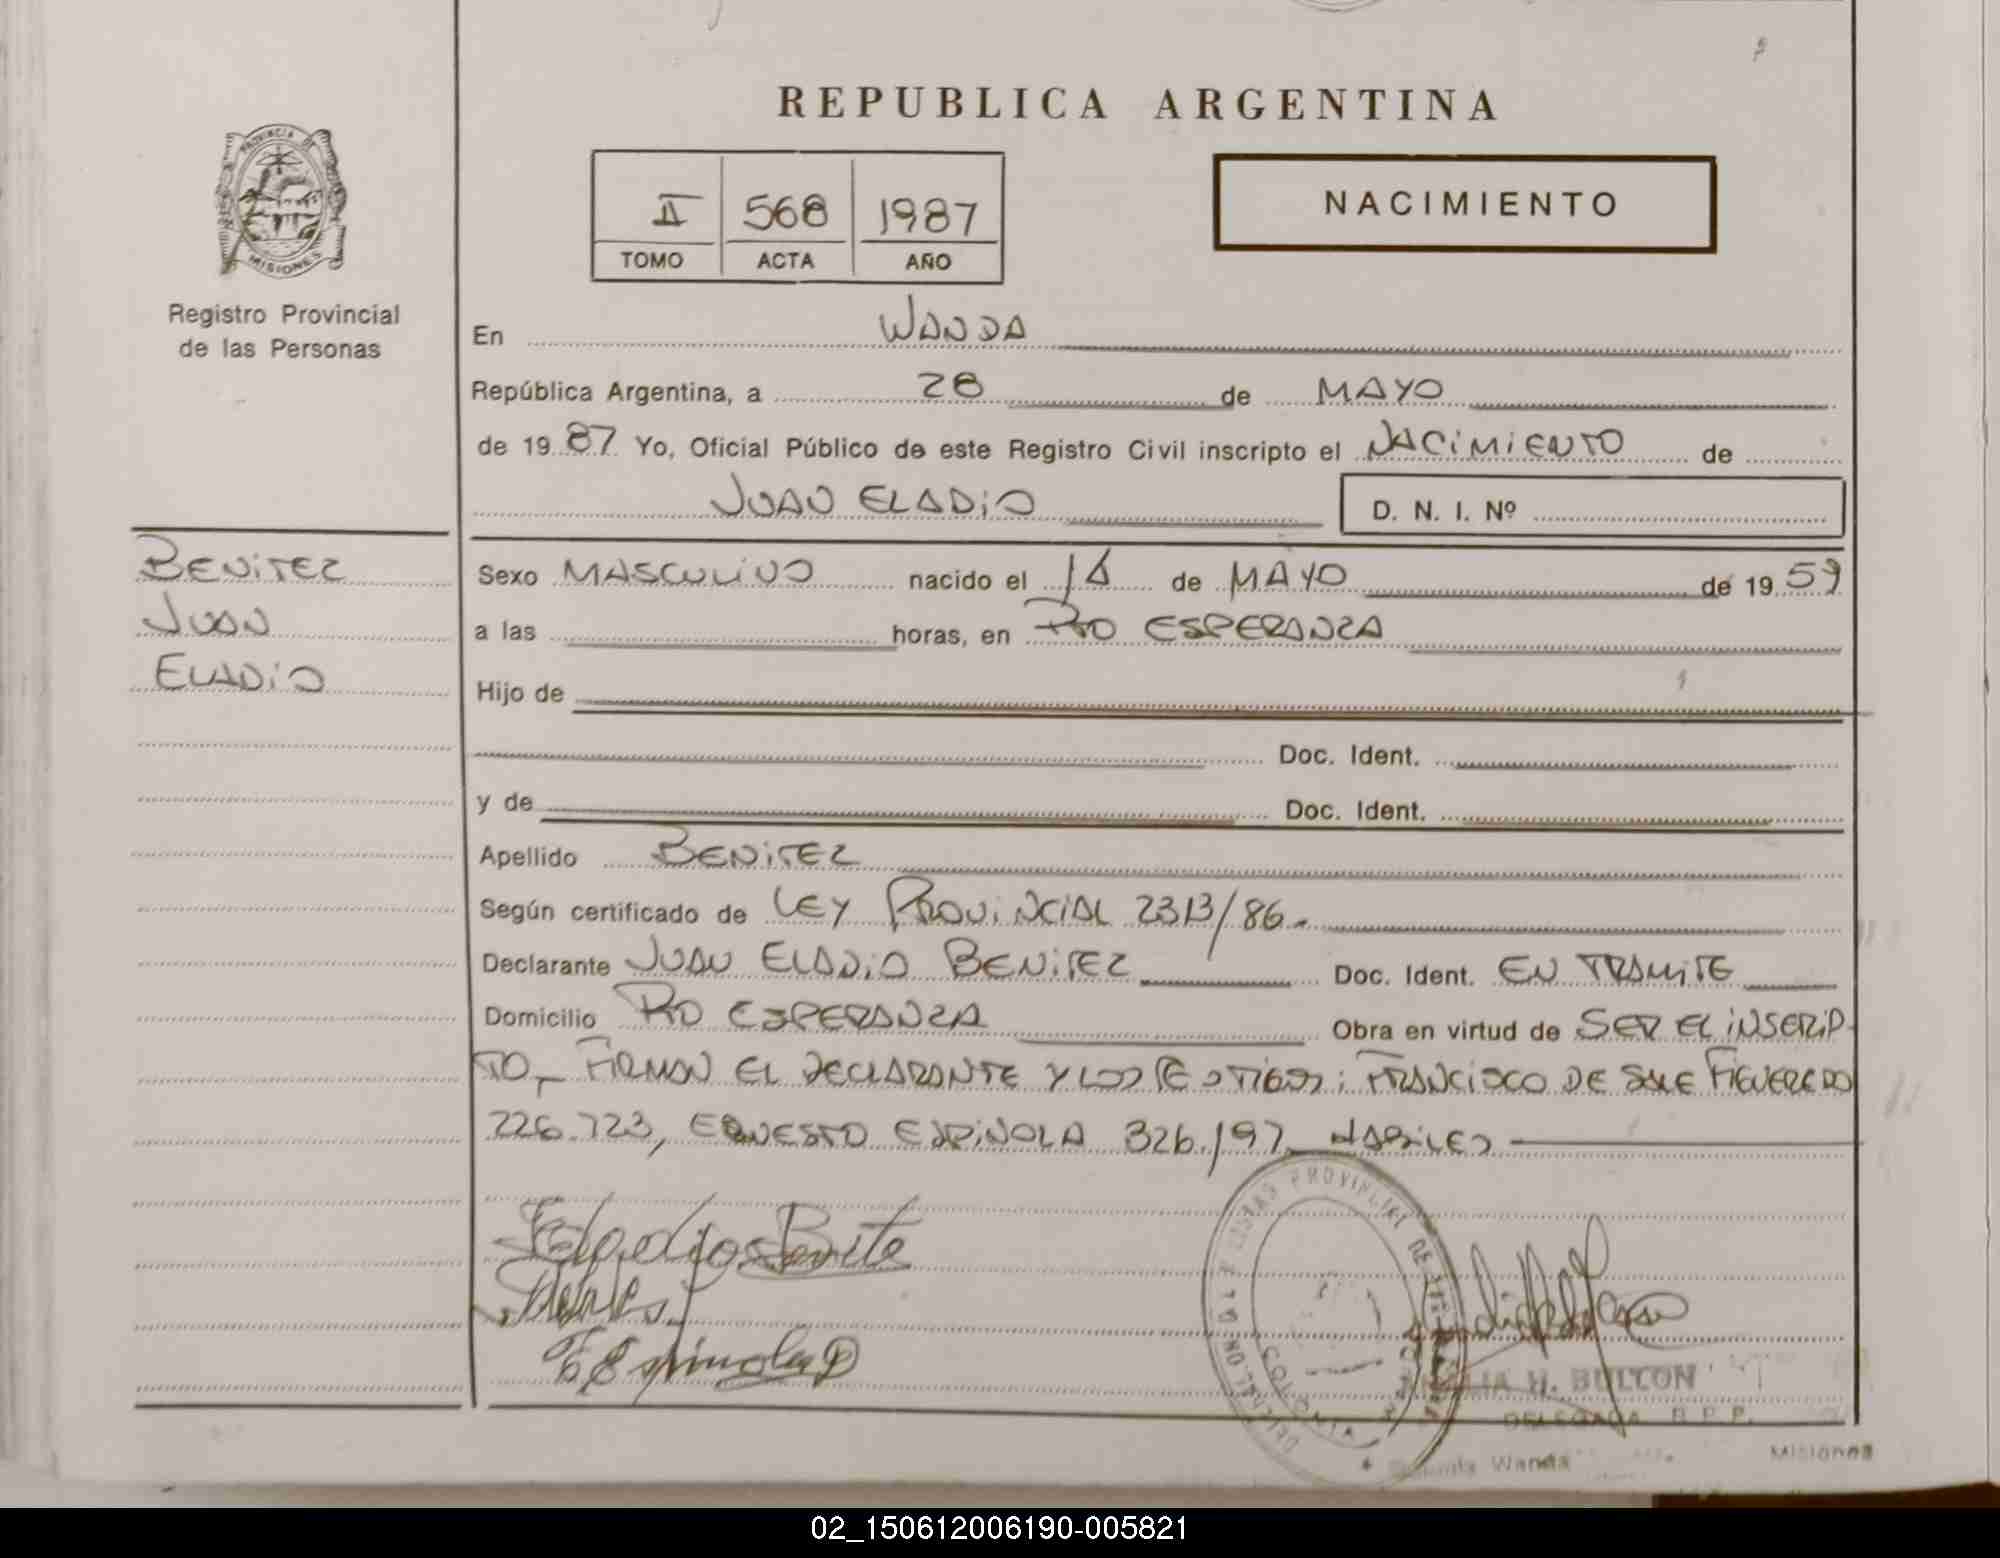 REPUBLICA ARGENTINA
PROVINCIA DE
MISIONES
Registro Provincial
de las Personas
II 568 1987
TOMO ACTA AÑO
NACIMIENTO
En WANDA
República Argentina, a 28 de MAYO
de 19 87 Yo, Oficial Público de este Registro Civil inscripto el NACIMIENTO de
JUAN ELADIO D. N. I. Nº
BENITEZ
JUAN
ELADIO
Sexo MASCULINO nacido el de MAYO de 19 59
a las horas, en PTO ESPERANZA
Hijo de
Doc. Ident.
y de Doc. Ident.
Apellido BENITEZ
Según certificado de LEY PROVINCIAL 2313/86.
Declarante JUAN ELADIO BENITEZ Doc. Ident. EN TRAMITE
Domicilio PTO ESPERANZA Obra en virtud de SER EL INSCRIP-
TO_ FIRMAN EL DECLARANTE Y LOS TESTIGOS: FRANCISCO DE SALE FIGUEREDO
226.723, ERNESTO ESPINOLA 326.197 HABILES
E Espinola
H. BULLON
DELEGADA R.P.P.
Wanda Misiones
02_150612006190-005821